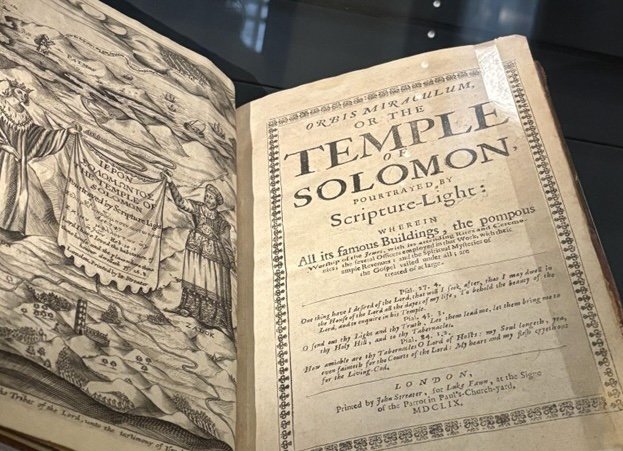 ΙΕΡΟΝ
ΣΟΛΟΜΩΝΤΟΣ
THE TEMPLE OF
SOLOMON
Pourtrayed by Scripture Light
the Tribes of the Lord, unto the testimony of
ORBIS MIRACULUM,
OR THE
TEMPLE
OF
SOLOMON,
POURTRAYED BY
Scripture-Light:
WHEREIN
All its famous Buildings, the pompous
Worship of the Jewes, with its attending Rites and Ceremo-
nies; the several Officers employed in that Work, with their
ample Revenues: and the Spiritual Mysteries of
the Gospel vailed under all; are
treated of at large.
Psal. 27. 4.
One thing have I desired of the Lord, that will I seek after, that I may dwell in
the House of the Lord all the dayes of my life, To behold the beauty of the
Lord, and to enquire in his Temple.
Psal. 43. 3.
O send out thy Light and thy Truth: let them lead me, let them bring me to
thy Holy Hill, and to thy Tabernacles.
Psal. 84. 1.2.
How amiable are thy Tabernacles O Lord of Hosts: my Soul longeth, yea,
even fainteth for the Courts of the Lord: My heart and my flesh cryeth out
for the Living-God.
LONDON,
Printed by John Streater, for Luke Fawn, at the Signe
of the Parrot in Paul's-Church-yard.
MDCLIX.